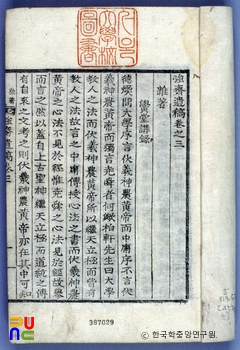 強齋遺稿卷之三
雜著
鬢堂講錄
德燦問大學序言伏羲神農黃帝而中庸序不言伏
羲神農黃帝而獨言堯舜者何歟栢軒先生曰大學
敎人之法而伏羲神農黃帝所以繼天立極而嘗有
敎人之法故言之中庸傳授心法之書而伏羲神農
黃帝之心法不見於經惟堯舜之心法見於經故舉
而言之然以蓋自上古聖神繼天立極而道統之傳
有自來之文考之則伏羲神農黃帝亦在其中可知
强齋遺稿 卷三
387029
한국학중앙연구원